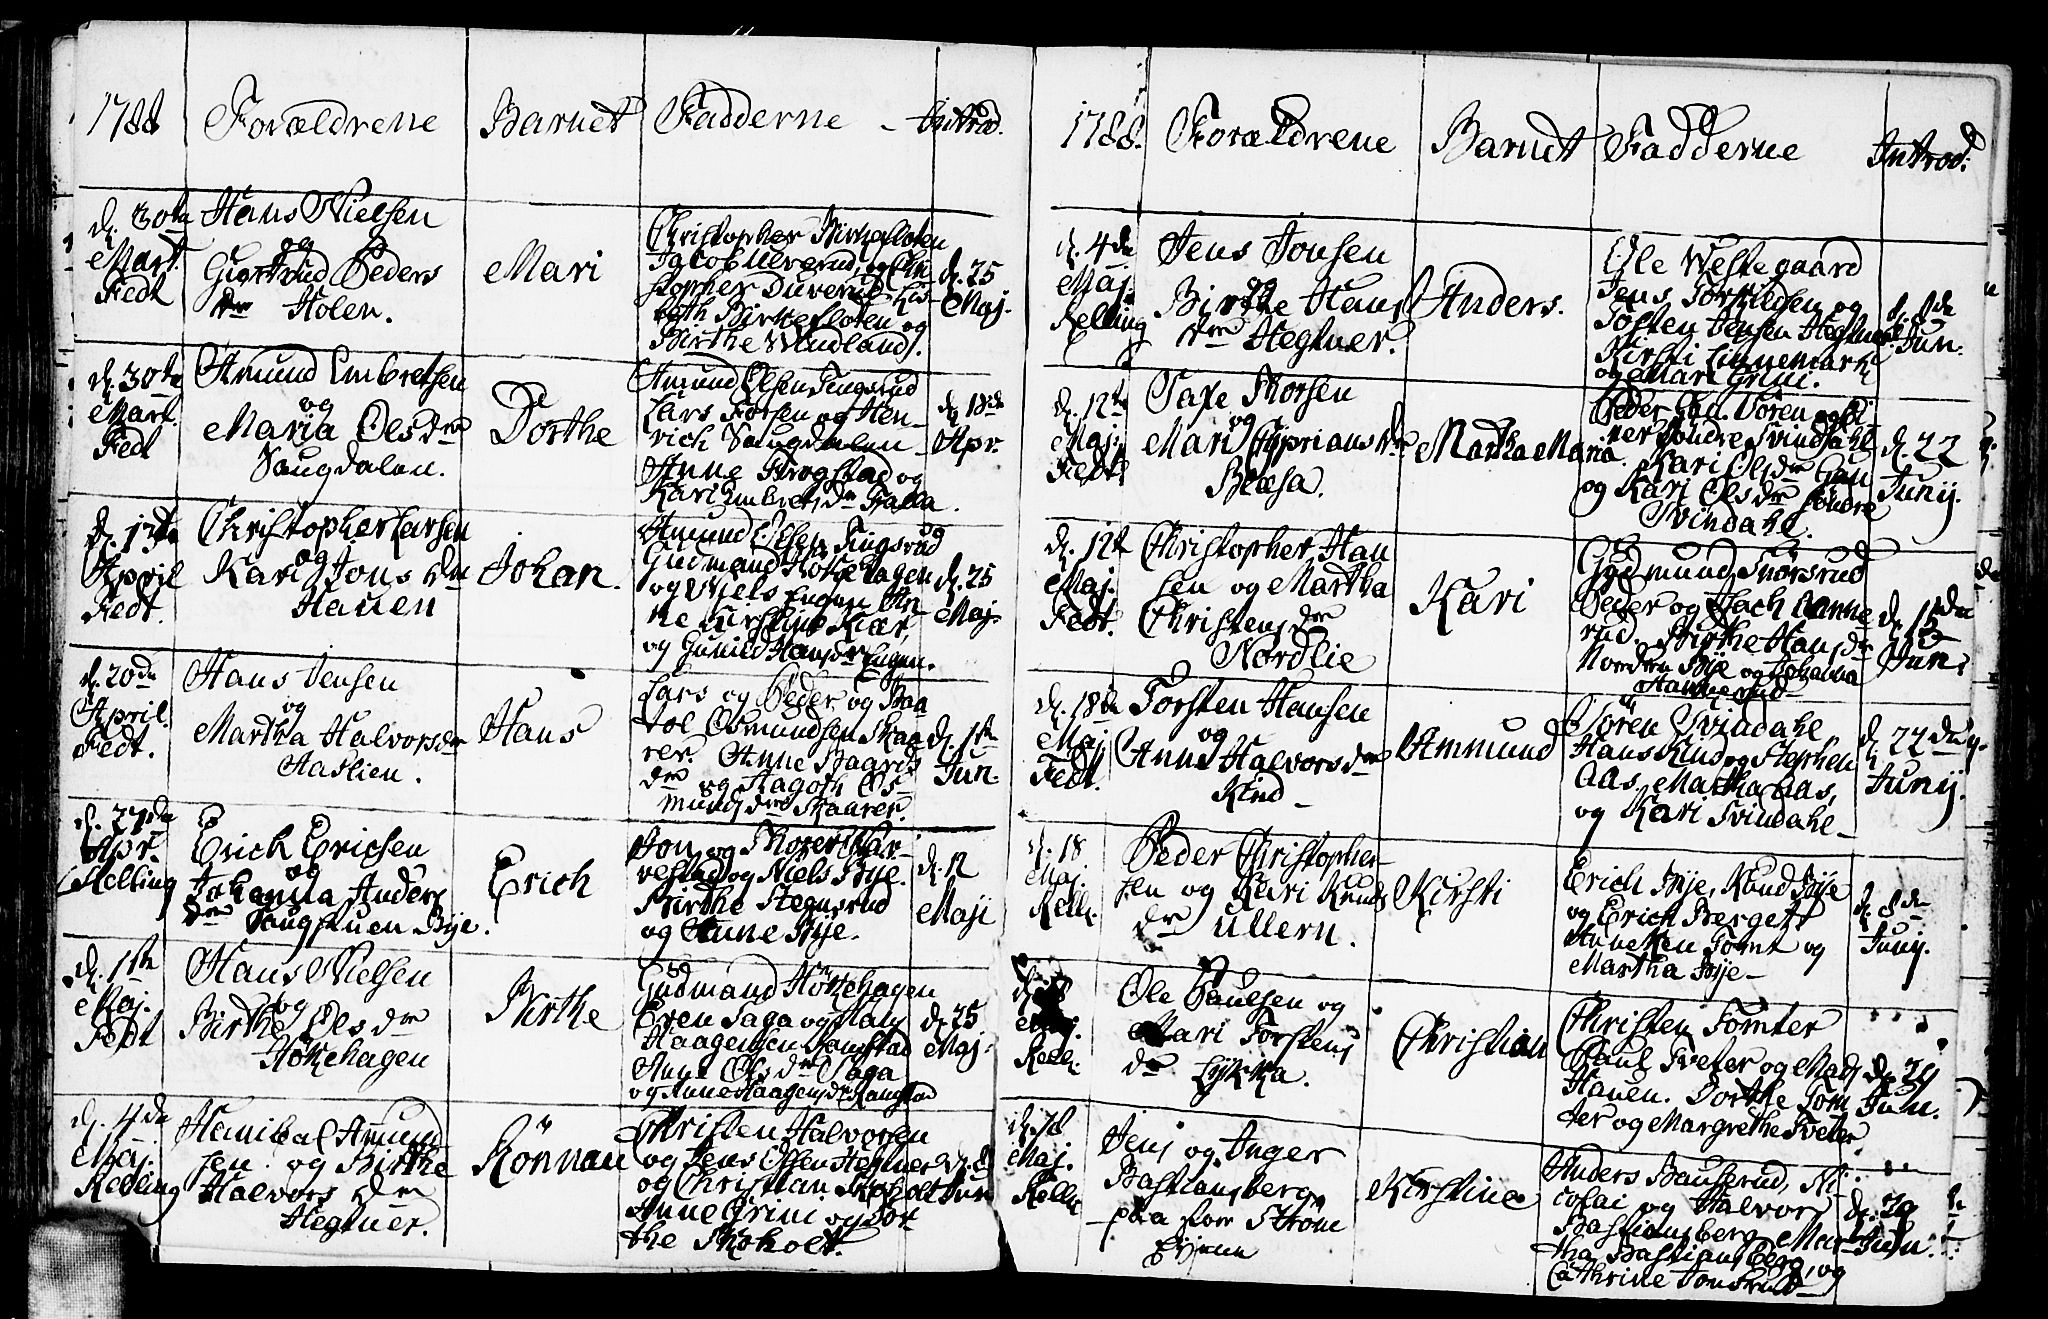 1788 Forældrene Barnet Fadderne - Introd.
d. 30te
Mart.
Fedt
Hans Nielsen
og
Giertrud Peders
dr Holen.
Mari
Christopher Birkefloten
Jacob Ulverud, og Chri
stopher Duverud Lis-
beth Birkefloten og
Birthe Windland.
d. 25
Maj.
d. 30te
Mart.
Fedt
Amund Embretsen
og
Maria Olsdr
Saugdalen.
Dorthe
Amund Olsen Tingsrud
Lars Forsen og Hen-
rich Saugdalen
Anne Krogstad og
Kari Embretsdr Galla.
d. 18de
Apr.
d. 13de
April
Fedt.
Christopher Larsen
og
Kari Jonsdr
Hauen
Johan.
Amund Olsen Tingsrud
Gudmand Hötzehagen
og Niels Engen An
ne Kirstine Kiær,
og Gunild Hansdr Engen.
d. 25
Maj.
d. 20de
April.
Fedt.
Hans Jensen
og
Martha Halvorsdr
Haslien.
Hans
Lars og Peder og Baa
Osmundsen Skaa
rer. Anne Baards
dr og Os-
mundsdr Skaarer.
d. 1ste
Jun.
d. 27de
Apr.
Kelling
Erich Ericsen
og
Johanna Anders
dr Saugstuen Bye.
Erich
Jon og
og Niels Bye.
Birthe Stegnsrud
og Anne Bye.
d. 12
Maji
d. 1ste
Maj.
Fedt
Hans Nielsen
og
Birthe Olsdr
Hötzehagen
Birthe
Gudmand Hötzehagen
Even Saga og Hans
Haagensen Ramstad
Anne Olsdr Saga
og Anne Haagensdr Ramstad
d. 25
Maj.
d. 4de
Maj.
Kelling
Hanibal Amund
sen og Birthe
Halvorsdr
Hegtuer.
Rönnau
Christen Halvorsen
og Jens Olsen Hegtuer
og Christian Skoholt
Anne Grini og Dor
the Skoholt.
d. 8
Jun
1788. Forældrene Barnet Fadderne Introd:
d. 4de
Maj.
Kelling
Jens Jonsen
og
Birthe Hans
dr Hegtuer.
Anders.
Ole Westegaard
Jens Torkildsen og
Tosten Jensen Hegtuer
Kirsti Linnemarke
og Mari Grini.
d. 8de
Jun.
d. 12te
Maj.
Fedt
Saxe Thorsen
og
Mari Cypriansdr
Blæsa.
Martha Maria.
Peder Gad. Sören og
Söndre Svindahl
Kari Olsdr Gan
og Kari Olsdr söndre
Svindahl.
d. 22
Junij.
d. 12te
Maj.
Fedt.
Christopher Han
sen og Martha
Christensdr
Nordlie
Kari
Gudmund Snörsrud
Peder og Hanne
rud. Birthe Hansdr
Nordre Bye og Johanna
Hannerud
d. 15den
Jun.
d. 18de
Maj
Fedt.
Torsten Hansen
og
Anne Halvorsdr
Kind -
Ammund
Sören Svindahl
Hans Kind og Stephen
Aas, Martha Aas,
og Kari Svindahl -
d. 22de
Junij.
d. 18
Maj.
Kell.
Peder Christopher-
sen og Kari Knuds
dr Ullern.
Kirsti
Erich Bye, Knud Bye
og Erich Berget
Anneken Tomt og
Martha Bye -
d. 8de
Junij.
d. 18
Maj.
Kell.
Ole Paulsen og
Mari Torstens
dr Lykka.
Christian
Christen Tomter
Paul Tveter og Mads
Hauen. Dorthe Tom
ter og Margrethe Tveter
d. 29
Jun.
d. 18
Maj.
Kell.
Jens og Inger
Bastiansberg
paa stor Ström
Eyeren
Kirstine
Anders Bauserud, Ni-
colai og Halvor
Bastiansberg. Mar-
tha Bastiansberg, og
Cathrine Jonsrud -
d. 29
Jun.